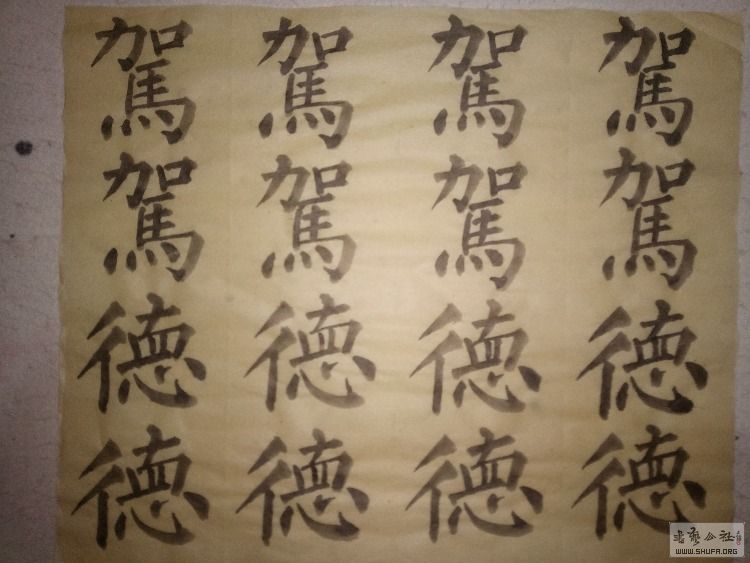 駕駕駕駕
駕駕駕駕
德德德德
德德德德
书艺公社
WWW.SHUFA.ORG